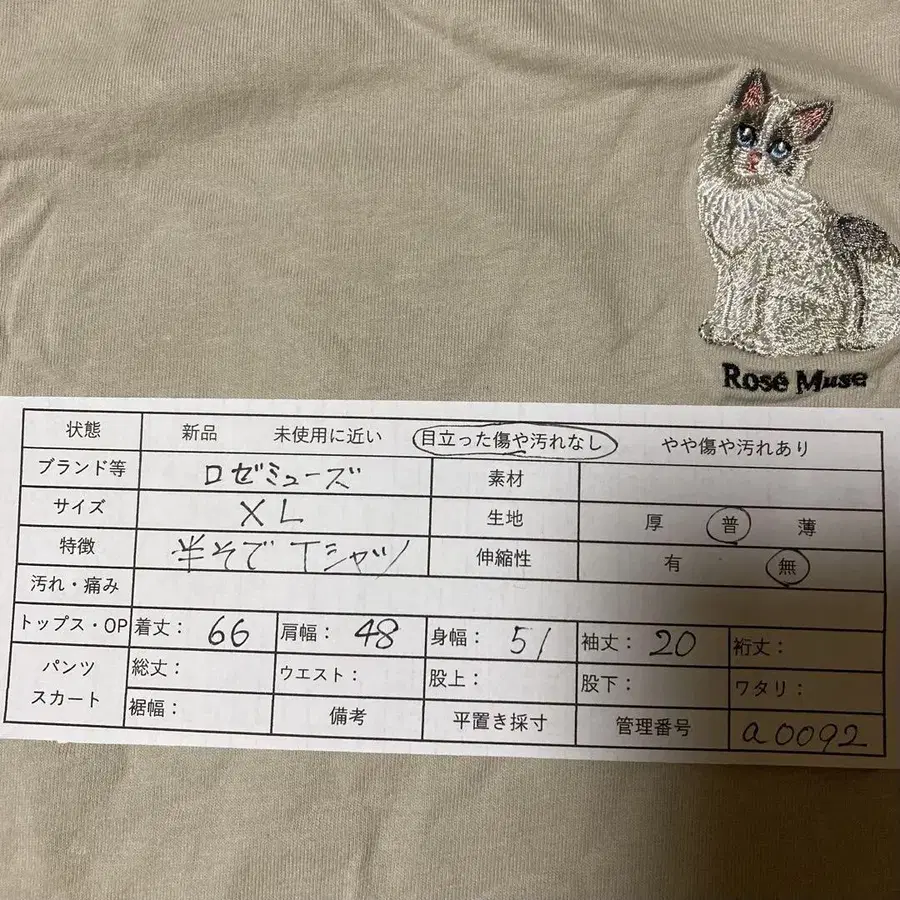 Rosé Muse
状態 新品 未使用に近い 目立った傷や汚れなし やや傷や汚れあり
ブランド等 ロゼミューズ 素材
サイズ XL 生地 厚 普 薄
特徴 半そでTシャツ 伸縮性 有 無
汚れ・痛み
トップス・OP 着丈: 66 肩幅: 48 身幅: 51 袖丈: 20 裄丈:
パンツ スカート 総丈: ウエスト: 股上: 股下: ワタリ:
裾幅: 備考 平置き採寸 管理番号 a0092